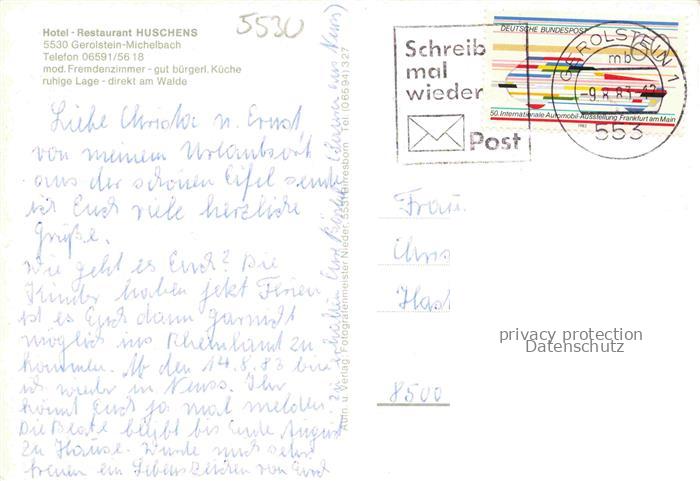 Hotel - Restaurant HUSCHENS
5530 Gerolstein-Michelbach
Telefon 06591/5618
mod. Fremdenzimmer - gut bürgerl. Küche
ruhige Lage - direkt am Walde
5530
Liebe Christa u. Ernst,
von meinem Urlaubsort
aus der schönen Eifel sende
ich Euch viele herzliche
Grüße.
Wie geht es Euch? Die
Kinder haben jetzt Ferien
ist es Euch dann garnicht
möglich ins Rheinland zu
kommen. Ab den 14.8.83 bin
ich wieder in Neuss. Ihr
könnt Euch ja mal melden.
Die Beate bleibt bis Ende August
zu Hause. Würde mich sehr
freuen ein Lebenszeichen von Euch
zu erhalten Eure
aus Neuss)
Aufn. u. Verlag Fotografenmeister Nieder, 5531 Birresborn Tel. (06594) 327
Schreib
mal
wieder
Post
DEUTSCHE BUNDESPOST
50. Internationale Automobil-Ausstellung Frankfurt am Main
GEROLSTEIN 1
mb
-9.8.83
553
Frau
Chris
Hast
8500
privacy protection
Datenschutz